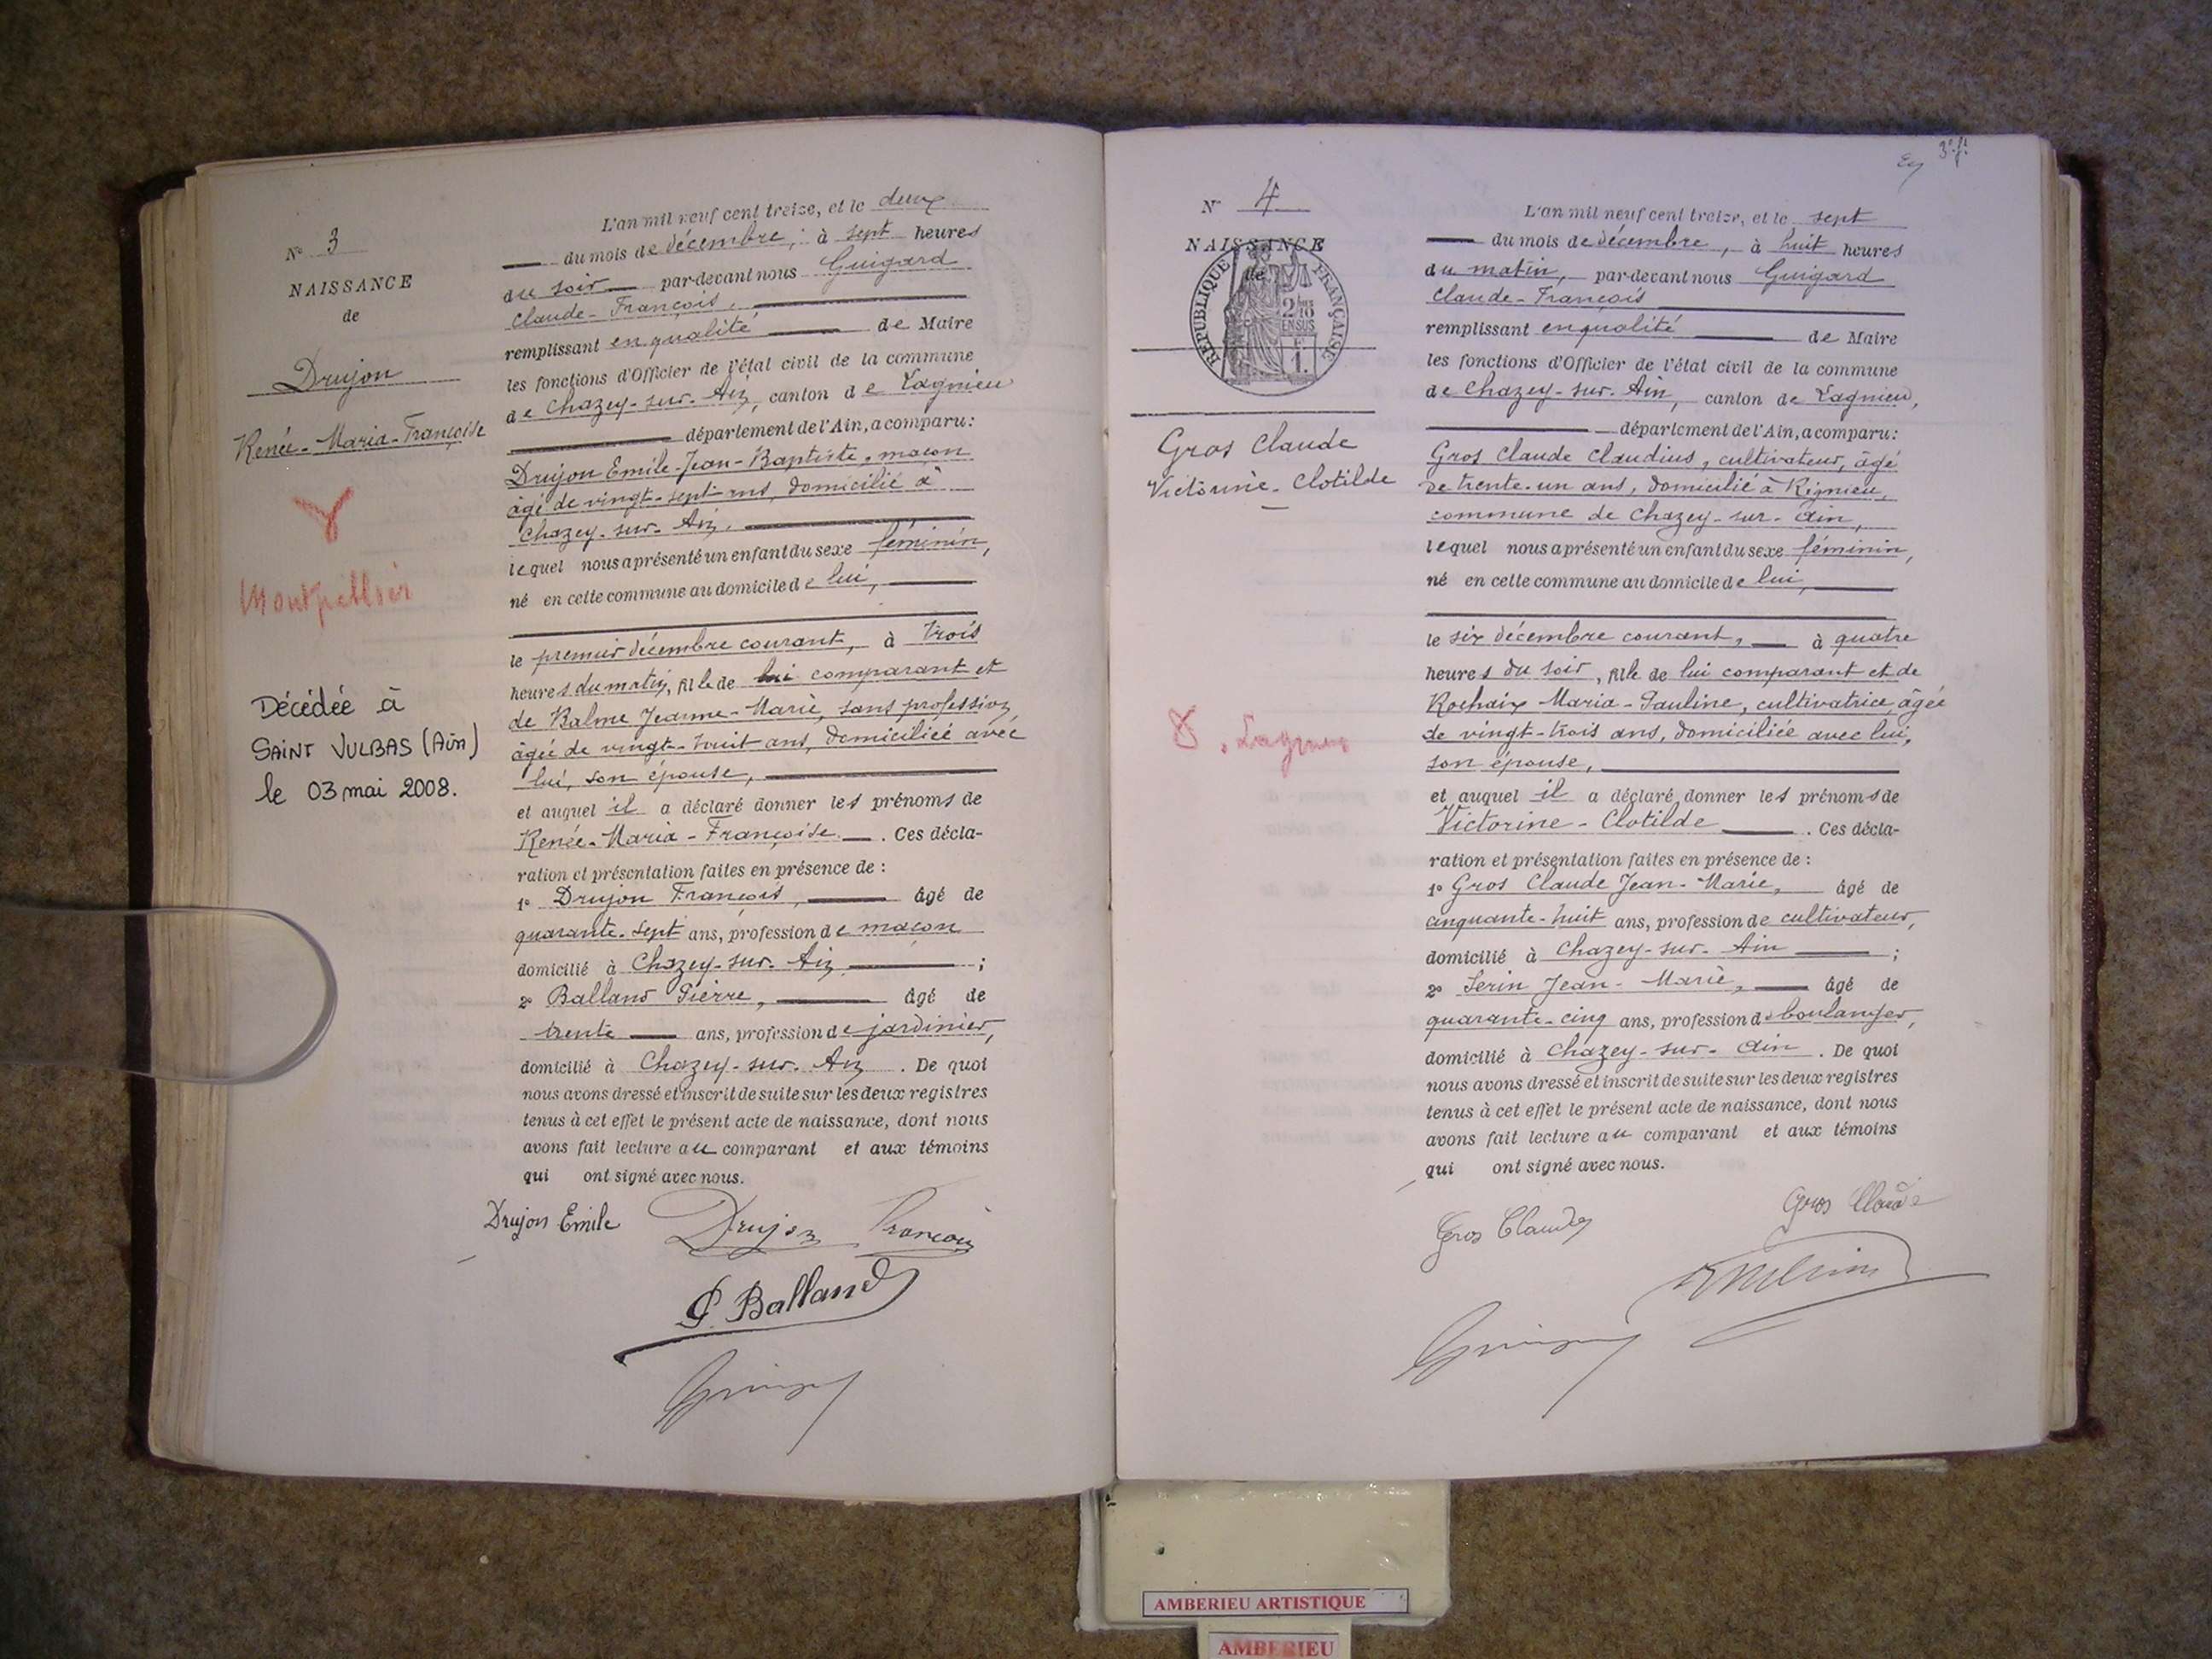 N° 3
NAISSANCE
de
Drujon
Renée-Maria-Françoise
Montpellier
Décédée à
SAINT VULBAS (Ain)
le 03 mai 2008.
L'an mil neuf cent treize, et le deux
du mois de décembre, à sept heures
du soir par-devant nous Guigard
Claude-François,
remplissant en qualité de Maire
les fonctions d'Officier de l'état civil de la commune
de Chazey-sur-Ain, canton de Lagnieu
département de l'Ain, a comparu :
Drujon Emile-Jean-Baptiste, maçon
âgé de vingt-sept ans, domicilié à
Chazey-sur-Ain,
lequel nous a présenté un enfant du sexe féminin,
né en cette commune au domicile de lui,
le premier décembre courant, à trois
heures du matin, fille de lui comparant et
de Balme Jeanne-Marie, sans profession
âgée de vingt-huit ans, domiciliée avec
lui, son épouse,
et auquel il a déclaré donner les prénoms de
Renée-Maria-Françoise. Ces décla-
ration et présentation faites en présence de :
1° Drujon François, âgé de
quarante-sept ans, profession de maçon
domicilié à Chazey-sur-Ain ;
2° Balland Pierre, âgé de
trente ans, profession de jardinier,
domicilié à Chazey-sur-Ain . De quoi
nous avons dressé et inscrit de suite sur les deux registres
tenus à cet effet le présent acte de naissance, dont nous
avons fait lecture au comparant et aux témoins
qui ont signé avec nous.
Drujon Emile Drujon François
P. Balland
3e f.
N° 4
NAISSANCE
de
REPUBLIQUE FRANÇAISE
2/10
EN SUS
1.
Gros Claude
Victorine-Clotilde
Lagnieu
L'an mil neuf cent treize, et le sept
du mois de décembre, à huit heures
du matin, par-devant nous Guigard
Claude-François
remplissant en qualité de Maire
les fonctions d'Officier de l'état civil de la commune
de Chazey-sur-Ain, canton de Lagnieu,
département de l'Ain, a comparu :
Gros Claude Claudius, cultivateur, âgé
de trente-un ans, domicilié à Rignieu,
commune de Chazey-sur-Ain,
lequel nous a présenté un enfant du sexe féminin,
né en cette commune au domicile de lui,
le six décembre courant, à quatre
heures du soir, fille de lui comparant et de
Rochaix Maria-Pauline, cultivatrice, âgée
de vingt-trois ans, domiciliée avec lui,
son épouse,
et auquel il a déclaré donner les prénoms de
Victorine-Clotilde . Ces décla-
ration et présentation faites en présence de :
1° Gros Claude Jean-Marie, âgé de
cinquante-huit ans, profession de cultivateur,
domicilié à Chazey-sur-Ain ;
2° Serin Jean-Marie, âgé de
quarante-cinq ans, profession de boulanger,
domicilié à Chazey-sur-Ain . De quoi
nous avons dressé et inscrit de suite sur les deux registres
tenus à cet effet le présent acte de naissance, dont nous
avons fait lecture au comparant et aux témoins
qui ont signé avec nous.
Gros Claude Gros Claude
AMBERIEU ARTISTIQUE
AMBERIEU